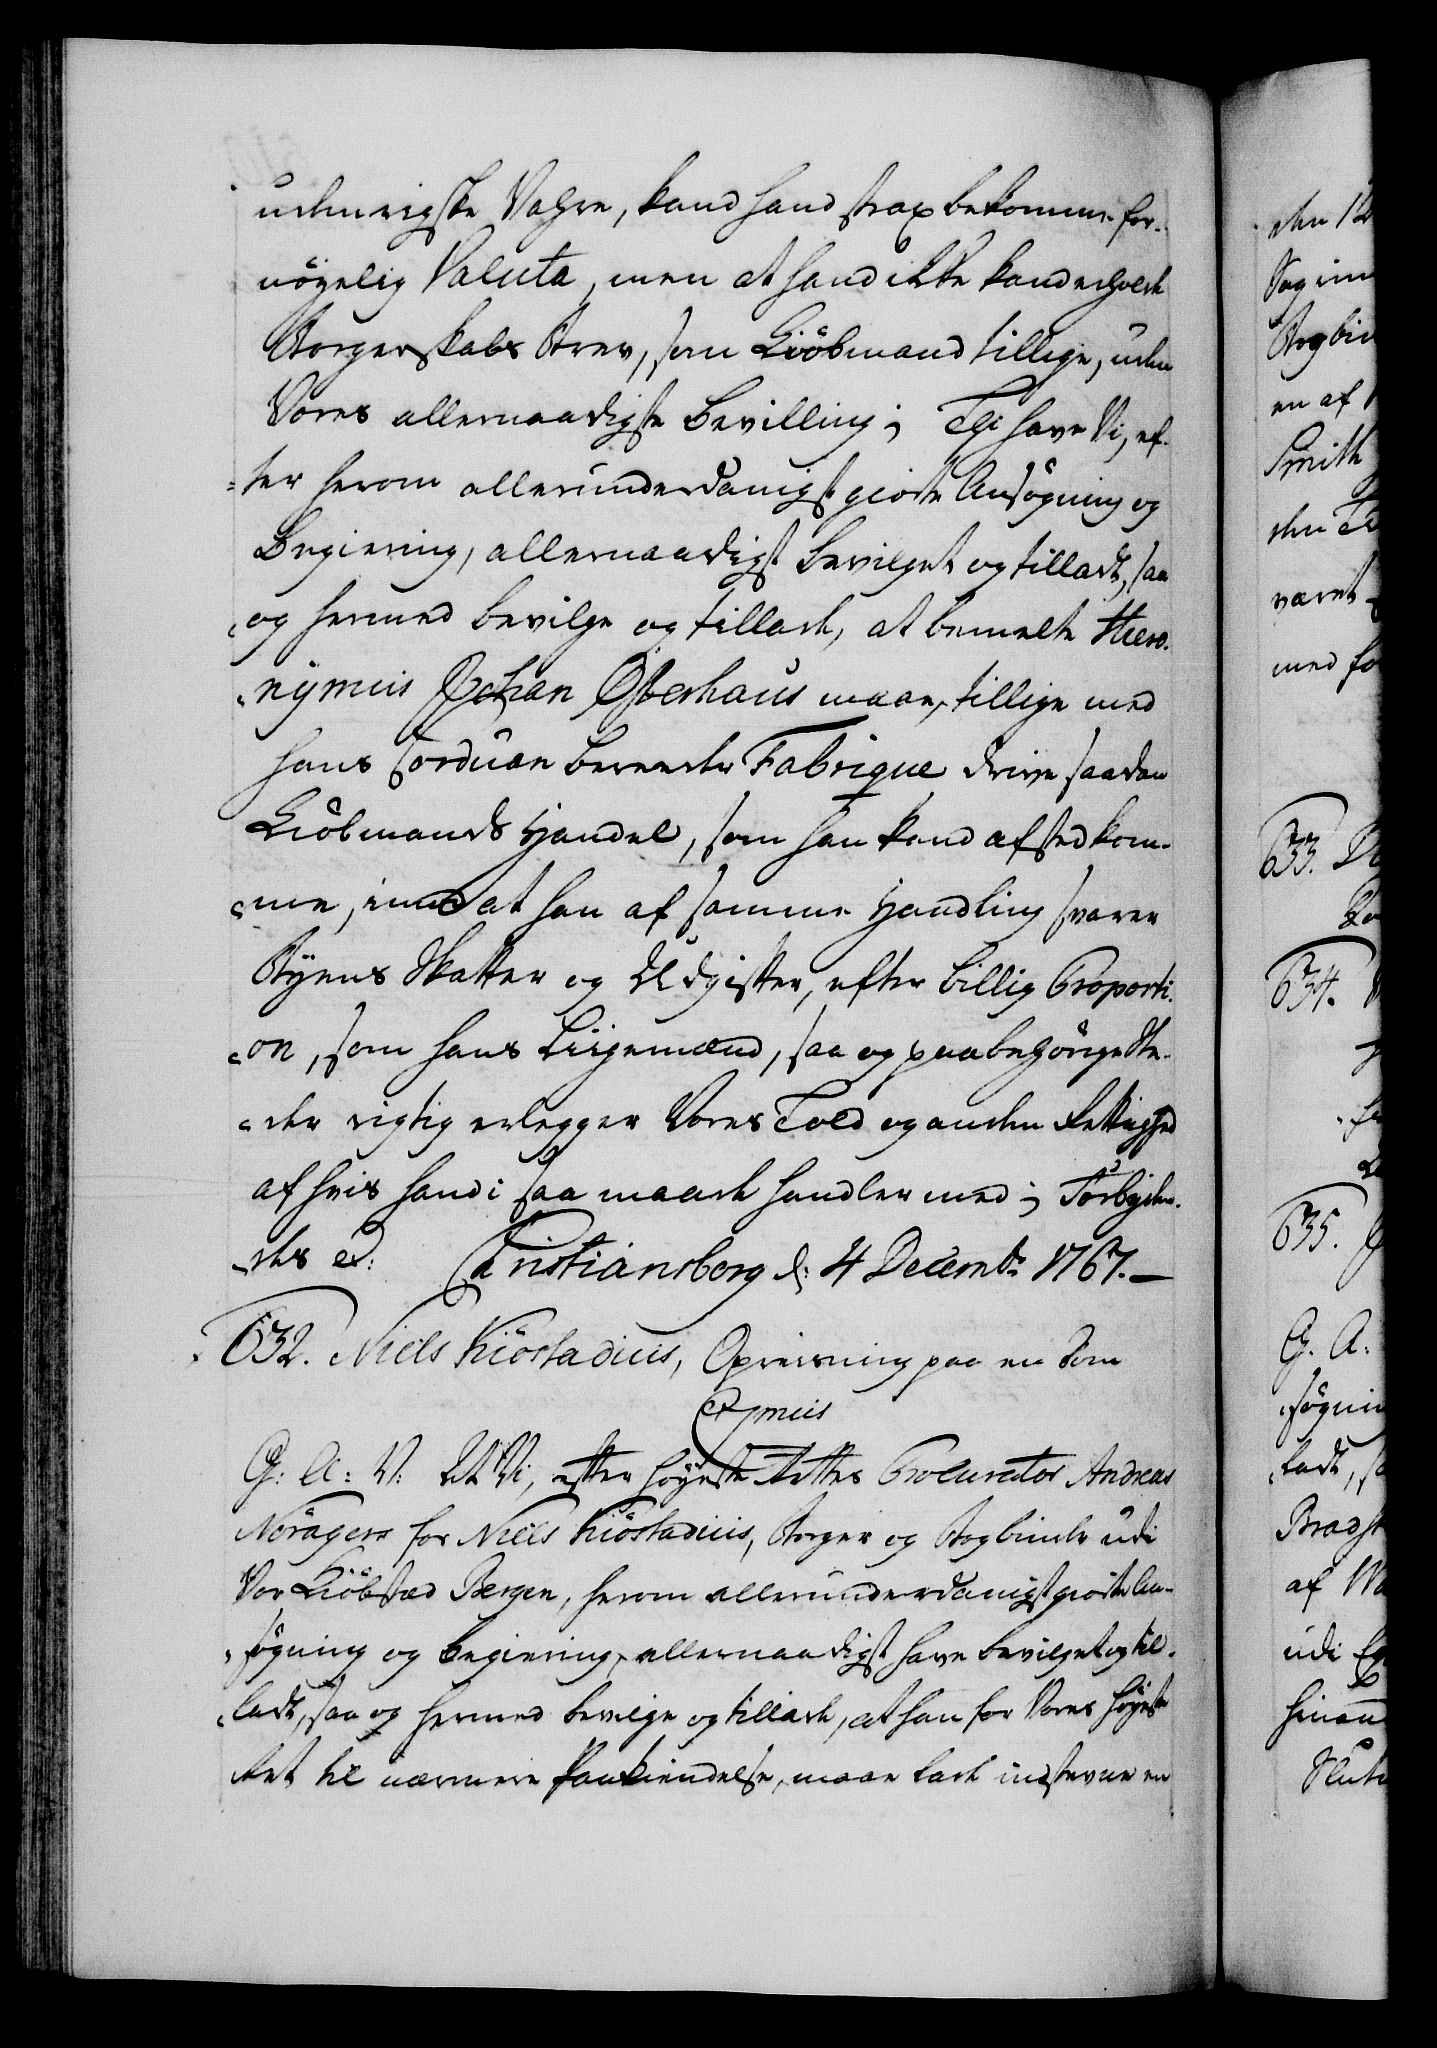 udenrigske Vahre, kand hand strax bekomme for-
nöyelig Valuta, men at hand ikke kand erholde
Borgerskabs Brev, som Kiöbmand tillige, uden
Vores allernaadigste Bevilling; Thi have Vi, ef-
ter herom allerunderdanigst giorte Ansögning og
Begiering, allernaadigst bevilget og tilladt, saa
og hermed bevilge og tillade, at bemelte Hiero-
nÿmus Johan Osterhaus maae, tillige med
hans Corduan bereeder Fabrique drive saadan
Kiöbmands Handel, som han kand afsted kom-
me, imod at han af samme Handling svarer
Byens Skatter og Udgifter, efter billig Proporti-
on, som hans Ligemænd, saa og paa behörige Ste-
der rigtig erlegger Vores Told og anden Rettighed
af hvis hand i saa maade handler med; Forbyden-
des &. Christiansborg d: 4 Decembr 1767.
632. Niels Kiöstadius, Opreisning paa en Dom
G: A: V: At Vi, efter höyeste Rettes Procurator Andreas
Noragers for Niels Kiöstadius, Borger og Bogbinder udi
Vor Kiöbsted Bergen, herom allerunderdanigst giorte An-
sögning og Begiering, allernaadigst have bevilget og til-
ladt, saa og hermed bevilge og tillade, at han for Vores Höyeste
Ret til nærmere Paakiendelse, maae lade indstevne en
den 12
en af
Smith
været
med
633.
634.
635.
G. A:
sögnin
ladt,
af
udi